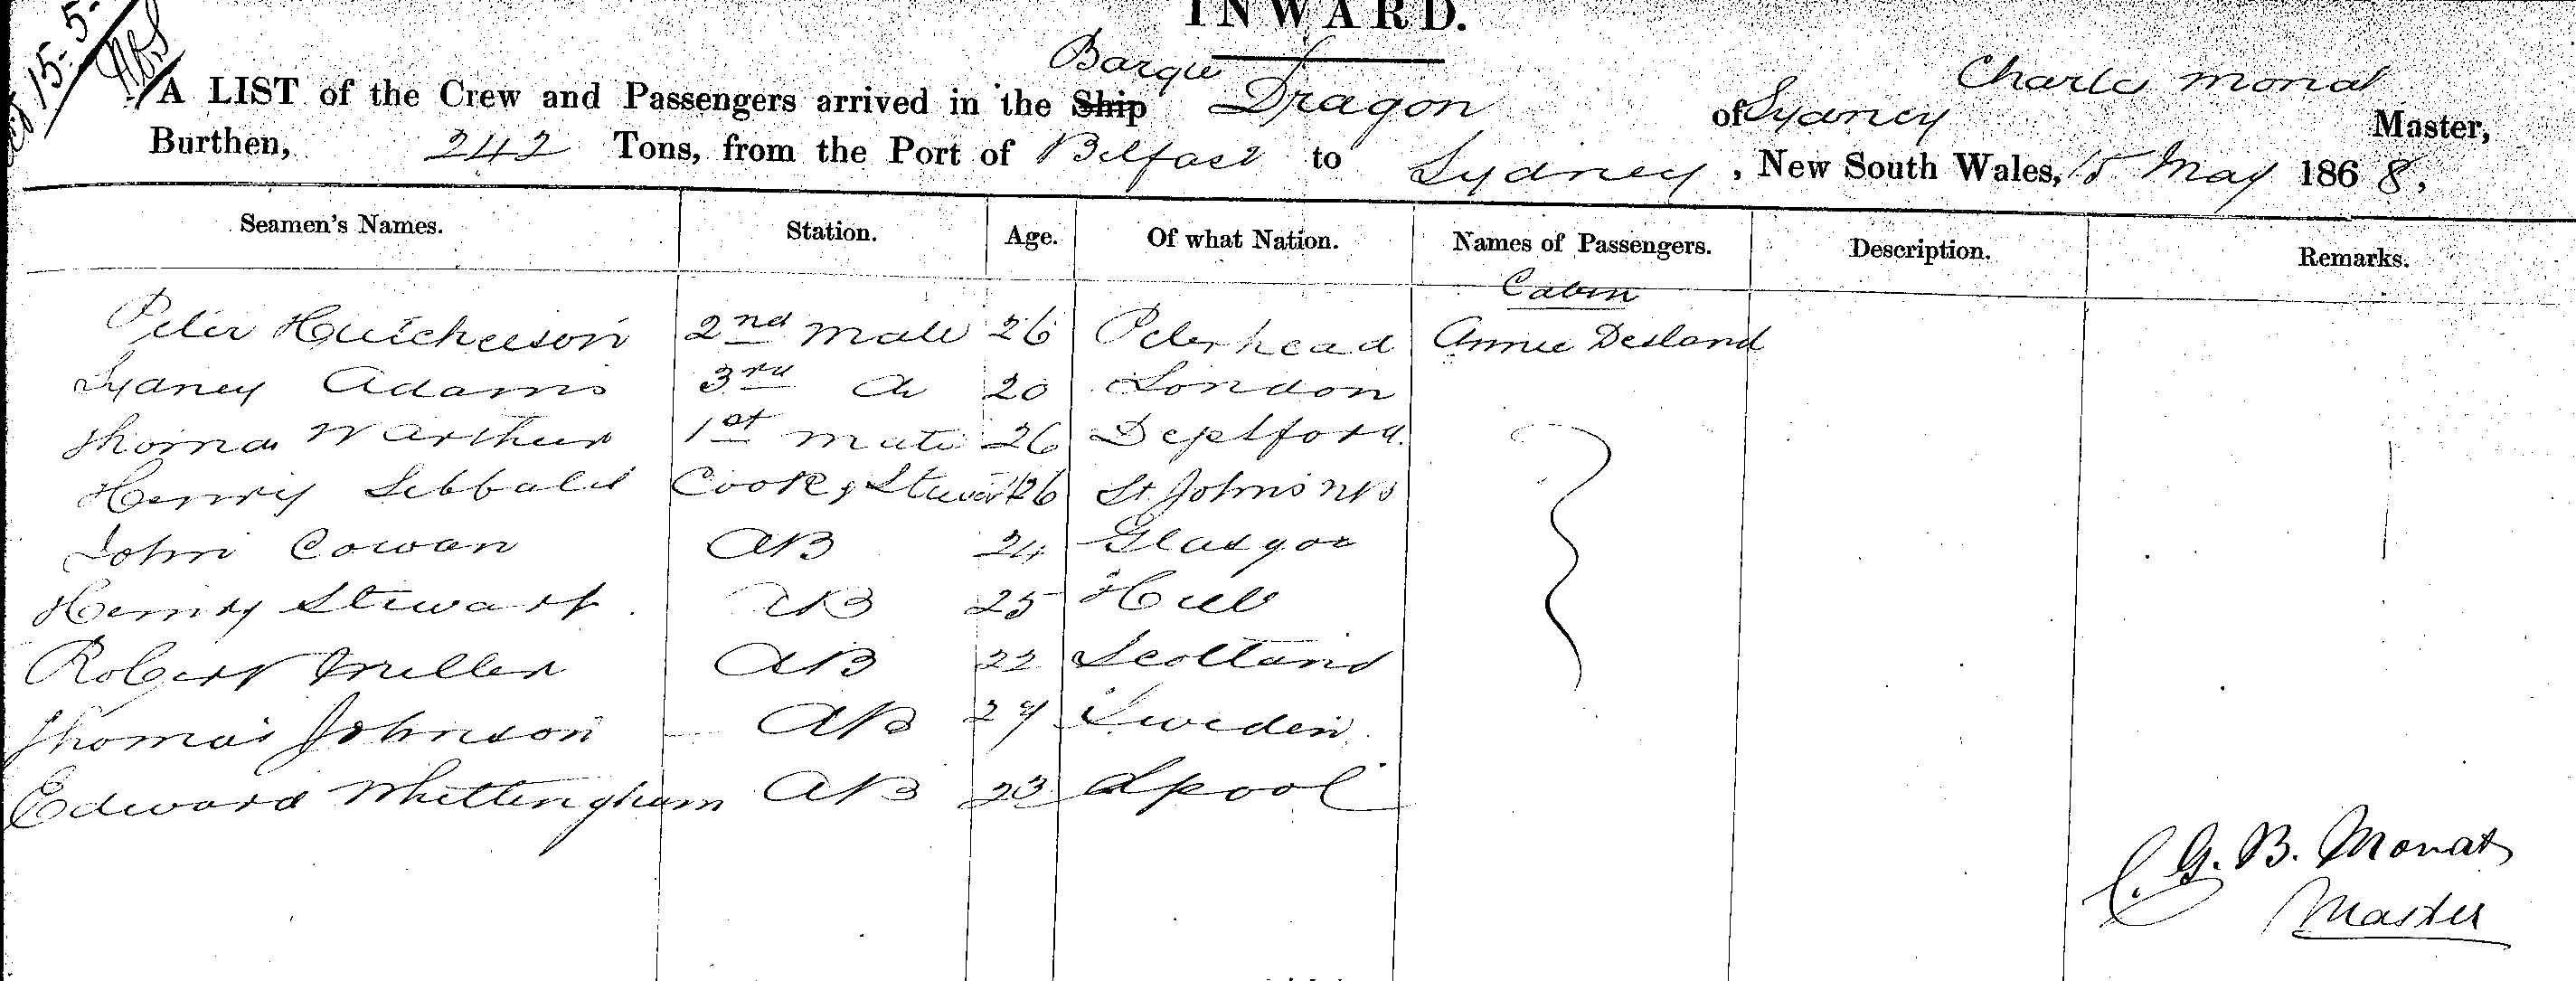 INWARD.
15-5-
A LIST of the Crew and Passengers arrived in the Ship Barque Dragon of Sydney Charles Monat Master,
Burthen, 242 Tons, from the Port of Belfast to Sydney, New South Wales, 15 May 1868,
Seamen's Names. Station. Age. Of what Nation. Names of Passengers. Description. Remarks.
Cabin
Peter Hutcheeson 2nd Mate 26 Peterhead Annie Desland
Sydney Adams 3rd do 20 London
Thomas W Arthur 1st Mate 26 Deptford.
Henry Sibbald Cook & Steward 26 St Johns NB
John Cowan AB 24 Glasgow
Henry Stewart AB 25 Hull
Robert Miller AB 22 Scotland
Thomas Johnson AB 24 Sweden
Edward Whittingham AB 23 Lpool
C. G. B. Monat
Master